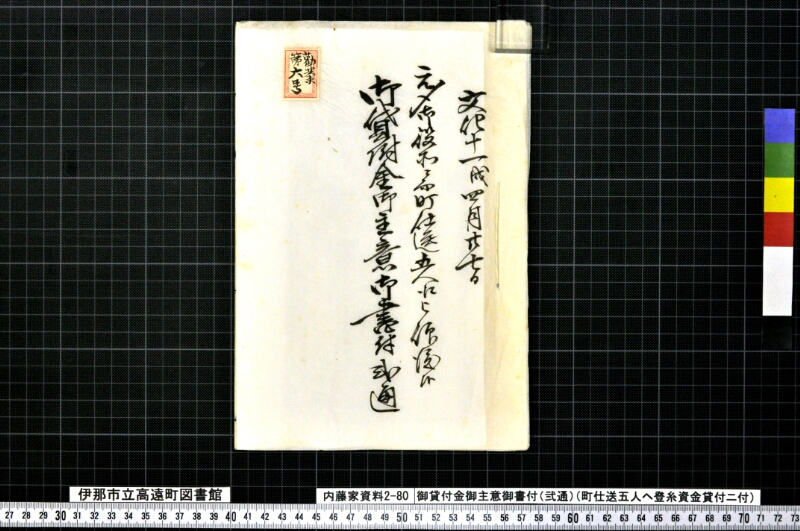 文化十一戌四月廿七日
元〆御役所ゟ町仕送五人江被仰渡候
御貸附金御主意御書付弐通
勧業
第六号
伊那市立高遠町図書館
内藤家資料2-80
御貸付金御主意御書付(弐通)(町仕送五人へ登糸資金貸付ニ付)
27 28 29 30 31 32 33 34 35 36 37 38 39 40 41 42 43 44 45 46 47 48 49 50 51 52 53 54 55 56 57 58 59 60 61 62 63 64 65 66 67 68 69 70 71 72 73